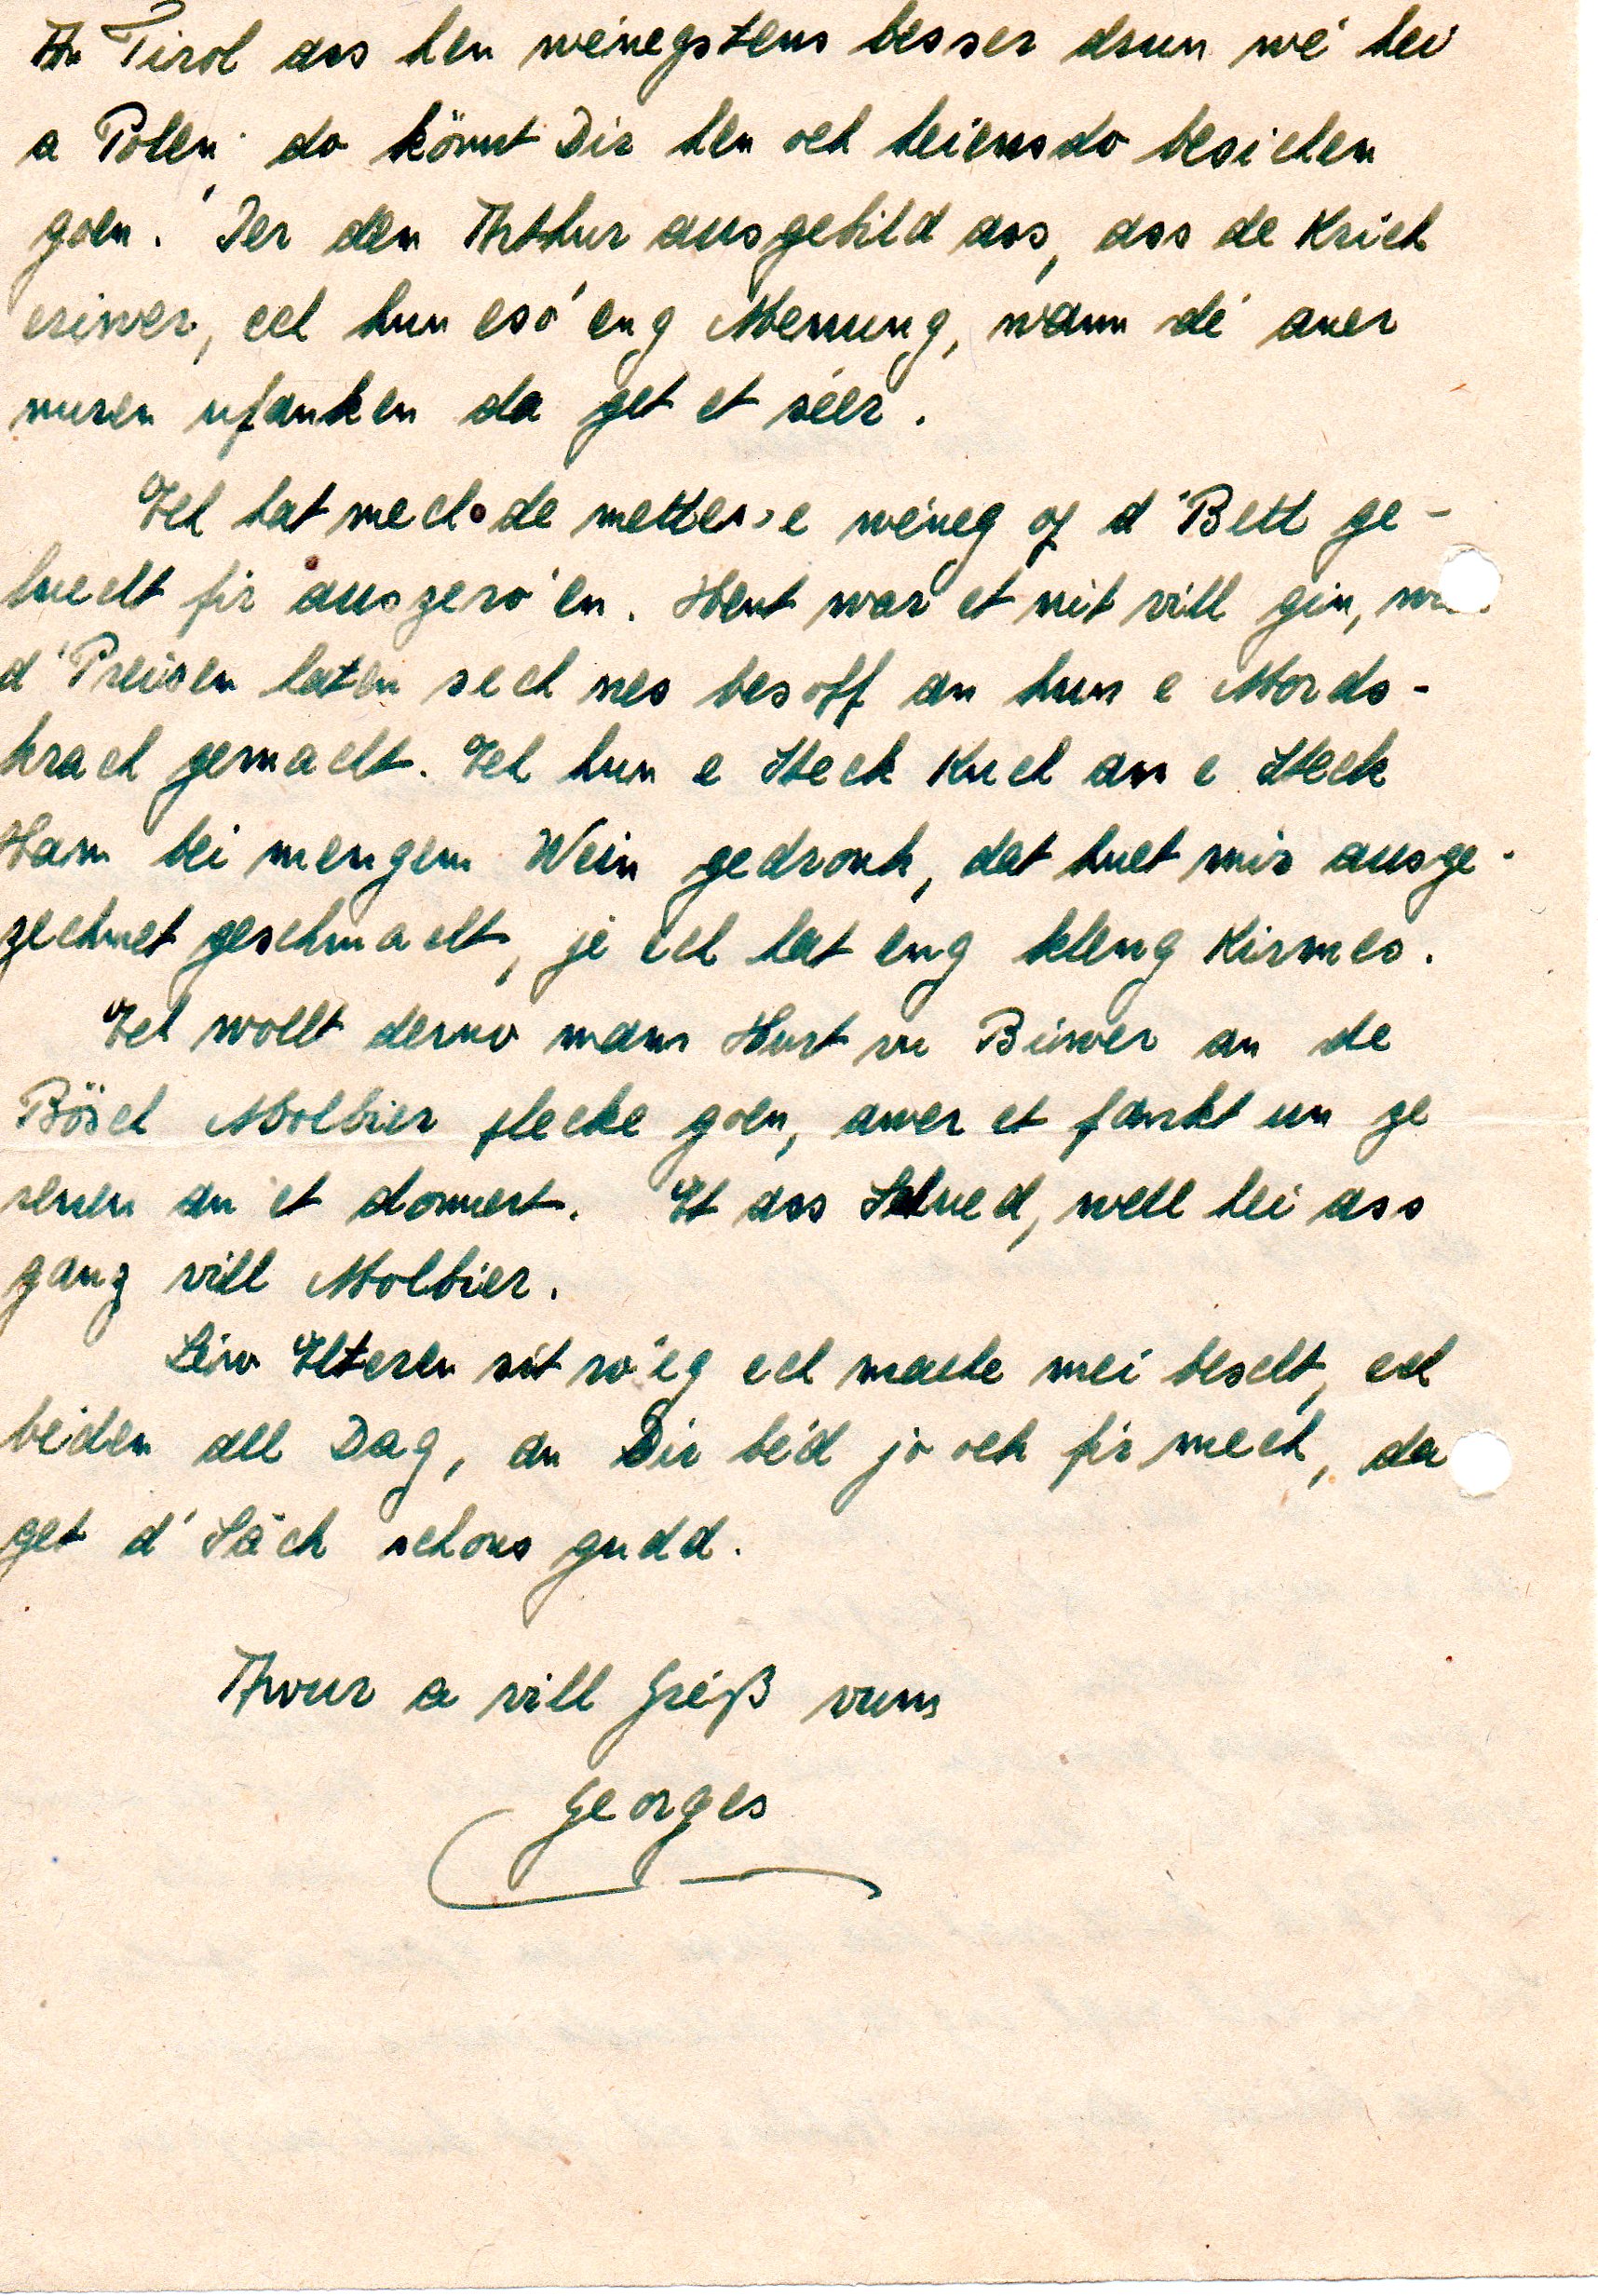 An Tirol ass hen wéinegstens besser drun wé hei
a Polen, do könnt Dir hen och heiensdo besichen
goen. Ier den Arthur ausgebild ass, ass de Krich
eriwer, ech hun esó eng Menung, wann dé aner
muren ufanken da get et séier.
Ech hat mech de metteg e wéneg op d'Bett ge-
luecht fir auszeró'en. Hent war et nit vill gin, w
d'Preisen haten sech nes besoff an hun e Mords-
krach gemacht. Ech hun e Steck Kuch an e Steck
Ham bei mengem Wein gedronk, dat huet mir ausge-
zechnet geschmacht, jé ech hat eng kleng Kirmes.
Ech wollt derno mam Hurt vu Biwer an de
Bösch Molbier plecke goen, awer et fänkt un ze
renen an et donnert. Et ass Schued, well hei ass
ganz vill Molbier.
Léiw Elteren sit ró'eg ech mache mei bescht, ech
bieden all Dag, an Dir bé'd jo och fir mech, da
get d'Säch schons gudd.
Awur a vill Gréiß vum
Georges